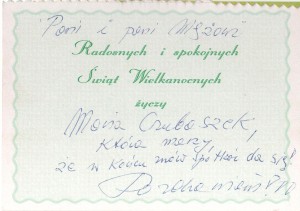 Pani i pani Mężowi
Radosnych i spokojnych
Świąt Wielkanocnych
życzy
Maria Czubaszek,
która marzy,
że w końcu
się!